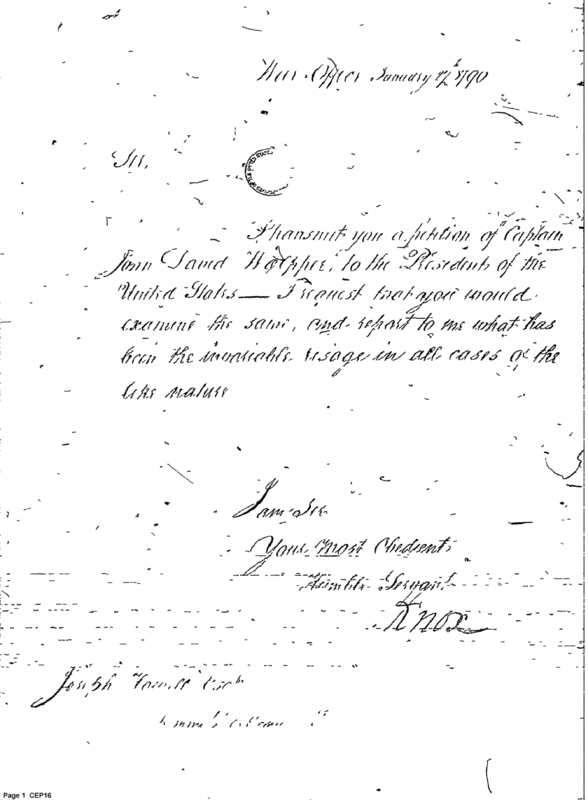 War Office January 12th 1790
Sir,
I transmit you a petition of Captain
John David Woelpper, to the President of the
United States — I request that you would
examine the same, and report to me what has
been the invariable usage in all cases of the
like nature
I am Sir
Your most Obedient
Humble Servant
HKnox
Joseph Howell Esqr
Page 1 CEP16